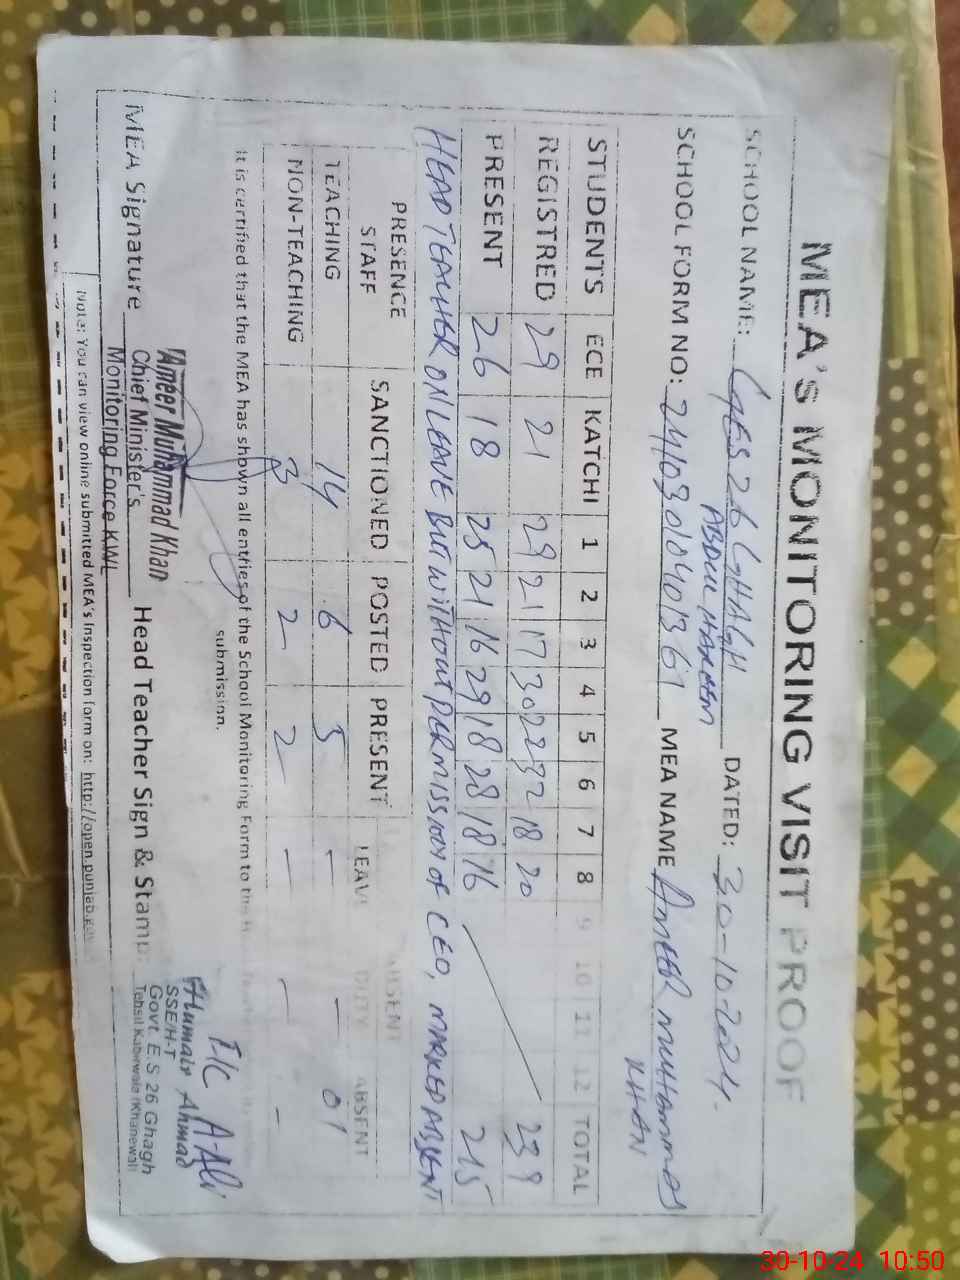 MEA's MONITORING VISIT PROOF
SCHOOL NAME: GES 26 GHAGH DATED: 30-10-2024.
ABDUL HAKEEM
SCHOOL FORM NO: MEA NAME AMEER MUHAMMAD
KHAN
STUDENTS ECE KATCHI 1 2 3 4 5 6 7 8 9 10 11 12 TOTAL
REGISTRED 29 21 29 21 17 30 22 32 18 20 239
PRESENT 26 18 25 21 16 29 18 28 18 16 215
HEAD TEACHER ON LEAVE BUT WITHOUT PERMISSION OF CEO, MARKED ABSENT
PRESENCE ABSENT
STAFF SANCTIONED POSTED PRESENT LEAVE DUTY ABSENT
TEACHING 14 6 5 — — 01
NON-TEACHING 3 2 2 — — -
It is certified that the MEA has shown all entries of the School Monitoring Form to the
submission.
Ameer Muhammad Khan
MEA Signature Chief Minister's Head Teacher Sign & Stamp:
Monitoring Force KWL
I/C A-Ali
Humair Ahmad
SSE/H-T
Govt. E.S 26 Ghagh
Tehsil Kabirwala (Khanewal)
Note: You can view online submitted MEA's Inspection form on: http://open.punjab.gov
30-10-24 10:50